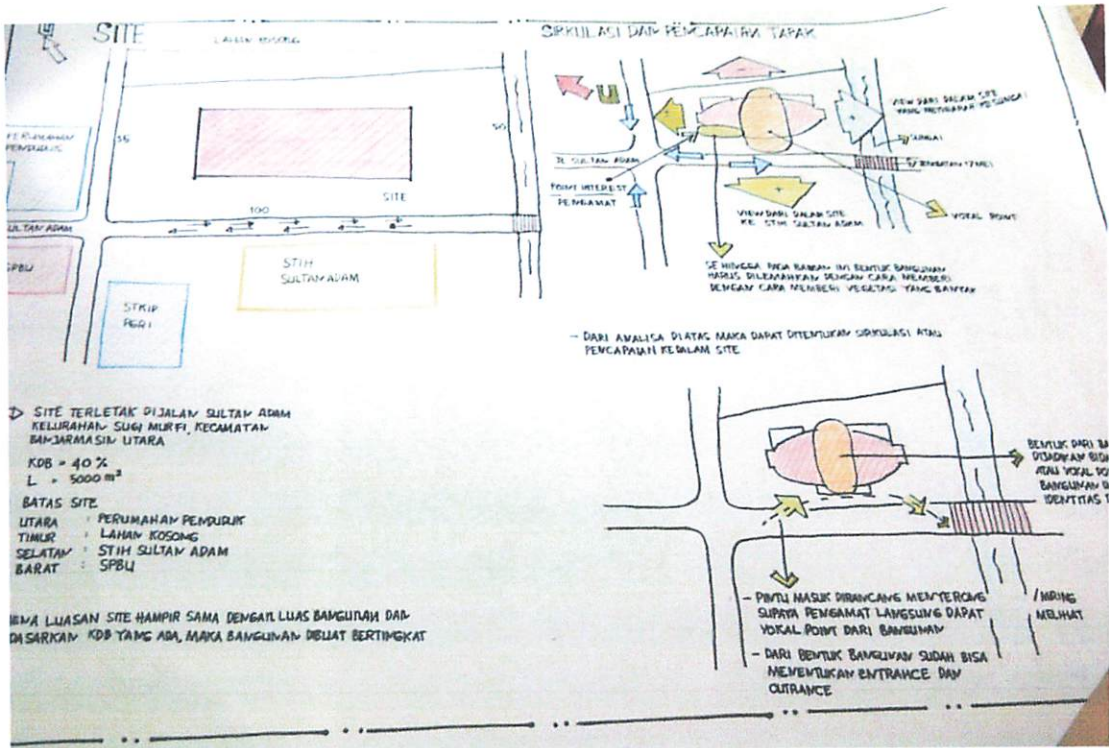 SITE
LAHAN KOSONG
PERUMAHAN
PENDUDUK
55
50
SITE
100
SULTAN ADAM
SPBU
STIH
SULTAN ADAM
STKIP
PGRI
SITE TERLETAK DIJALAN SULTAN ADAM
KELURAHAN SUGI MURFI, KECAMATAN
BANJARMASIN UTARA
KDB = 40 %
L = 5000 m²
BATAS SITE
UTARA : PERUMAHAN PENDUDUK
TIMUR : LAHAN KOSONG
SELATAN : STIH SULTAN ADAM
BARAT : SPBU
LUASAN SITE HAMPIR SAMA DENGAN LUAS BANGUNAN DAN
DASARKAN KDB YANG ADA, MAKA BANGUNAN DIBUAT BERTINGKAT
SIRKULASI DAN PENCAPAIAN TAPAK
U
VIEW DARI DALAM SITE
YANG MENGARAH KE SUNGAI
SUNGAI
JL SULTAN ADAM
JEMBATAN
POINT INTEREST
PENGAMAT
VIEW DARI DALAM SITE
KE STIH SULTAN ADAM
VOKAL POINT
SEHINGGA PADA BAGIAN INI BENTUK BANGUNAN
HARUS DILEMAHKAN DENGAN CARA MEMBERI
DENGAN CARA MEMBERI VEGETASI YANG BANYAK
- DARI ANALISA DIATAS MAKA DAPAT DITENTUKAN SIRKULASI ATAU
PENCAPAIAN KEDALAM SITE
BENTUK DARI
ATAU VOKAL
BANGUNAN
IDENTITAS
- PINTU MASUK DIRANCANG MENYERONG /MIRING
SUPAYA PENGAMAT LANGSUNG DAPAT MELIHAT
VOKAL POINT DARI BANGUNAN
- DARI BENTUK BANGUNAN SUDAH BISA
MENENTUKAN ENTRANCE DAN
OUTRANCE